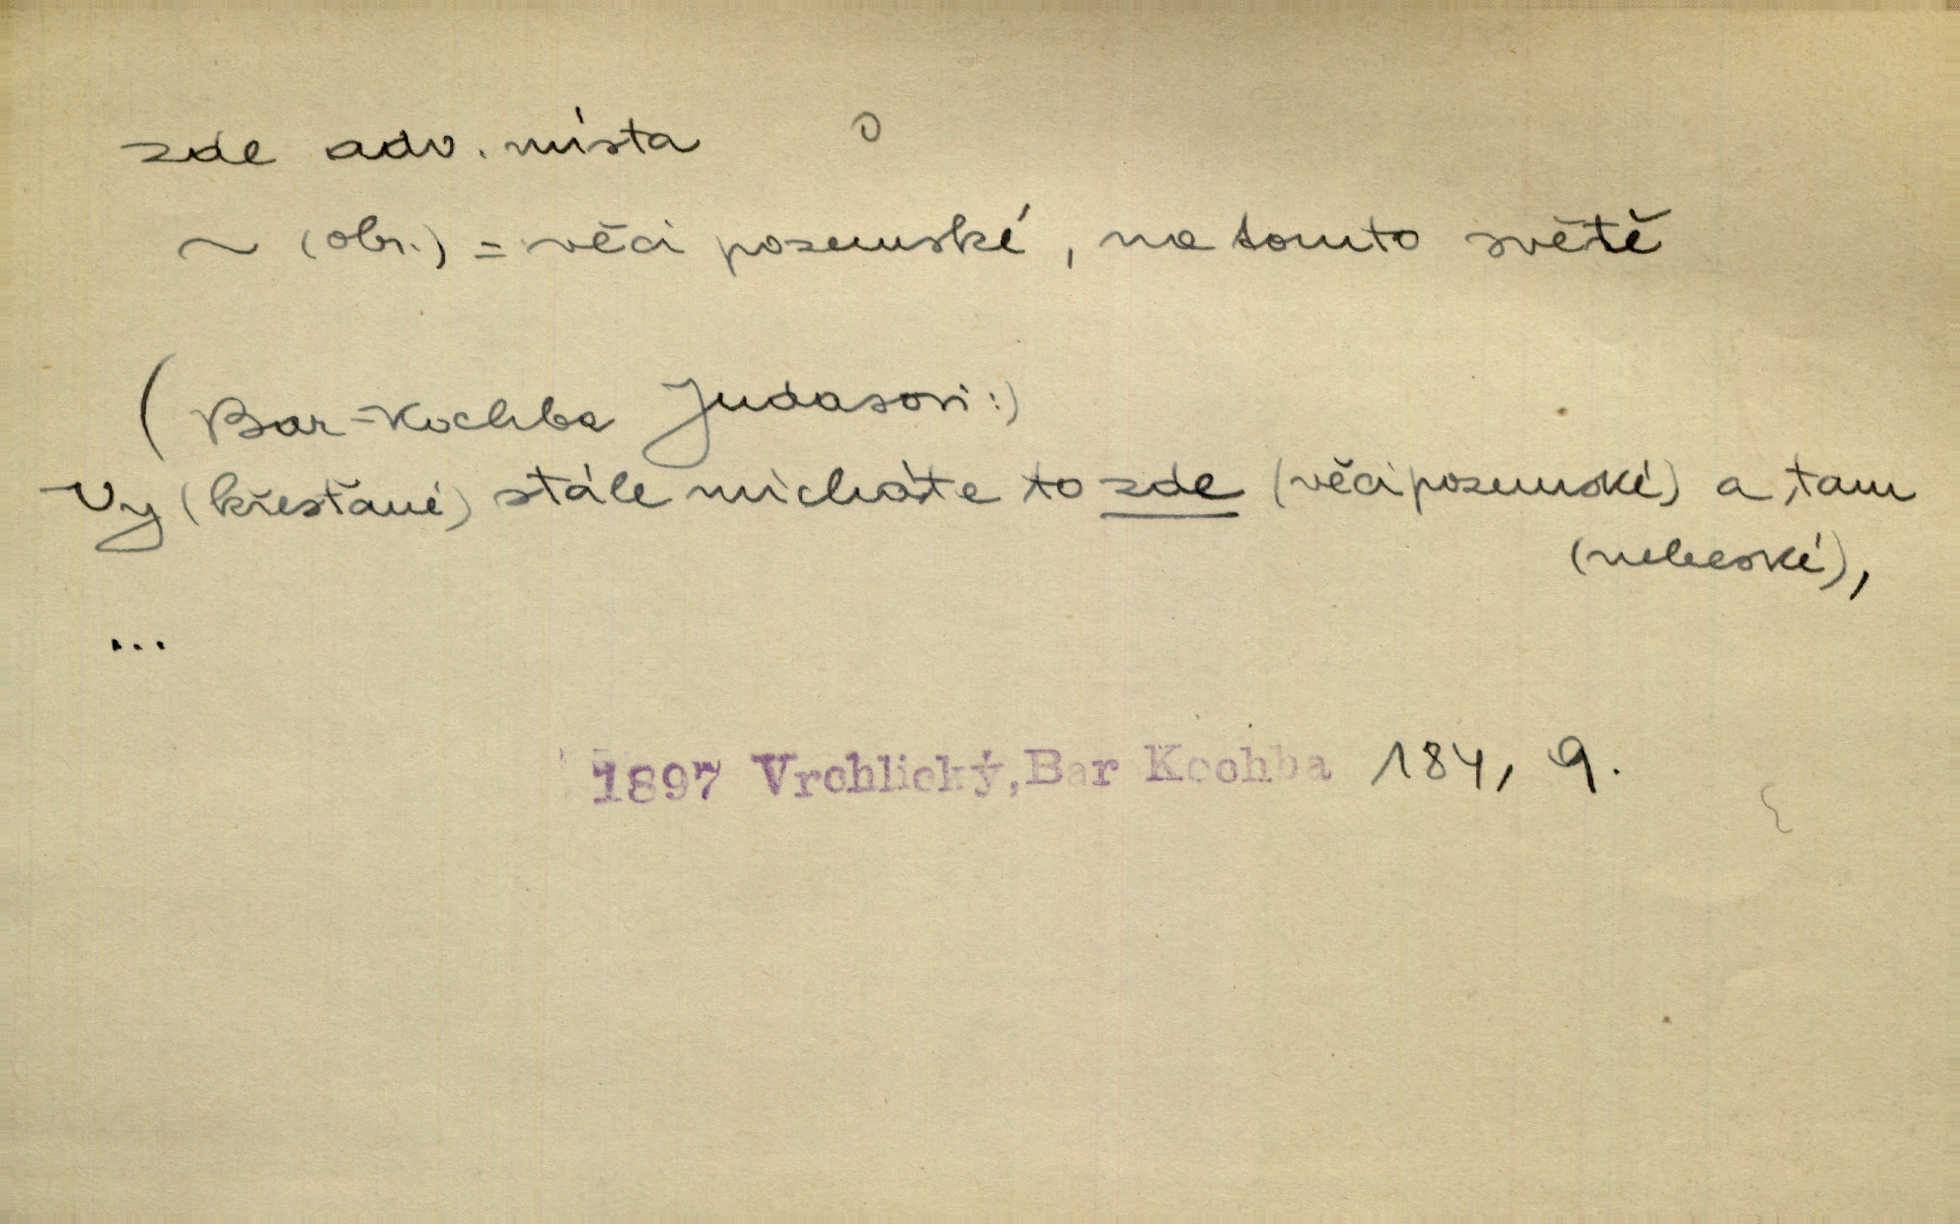 zde adv. místa O
~ (obr.) = věci pozemské, na tomto světě
(Bar-Kochba Judasovi:)
Vy (křesťané) stále micháte to zde (věci pozemské) a tam
(nebeské),
...
1897 Vrchlický, Bar Kochba 184, 9.